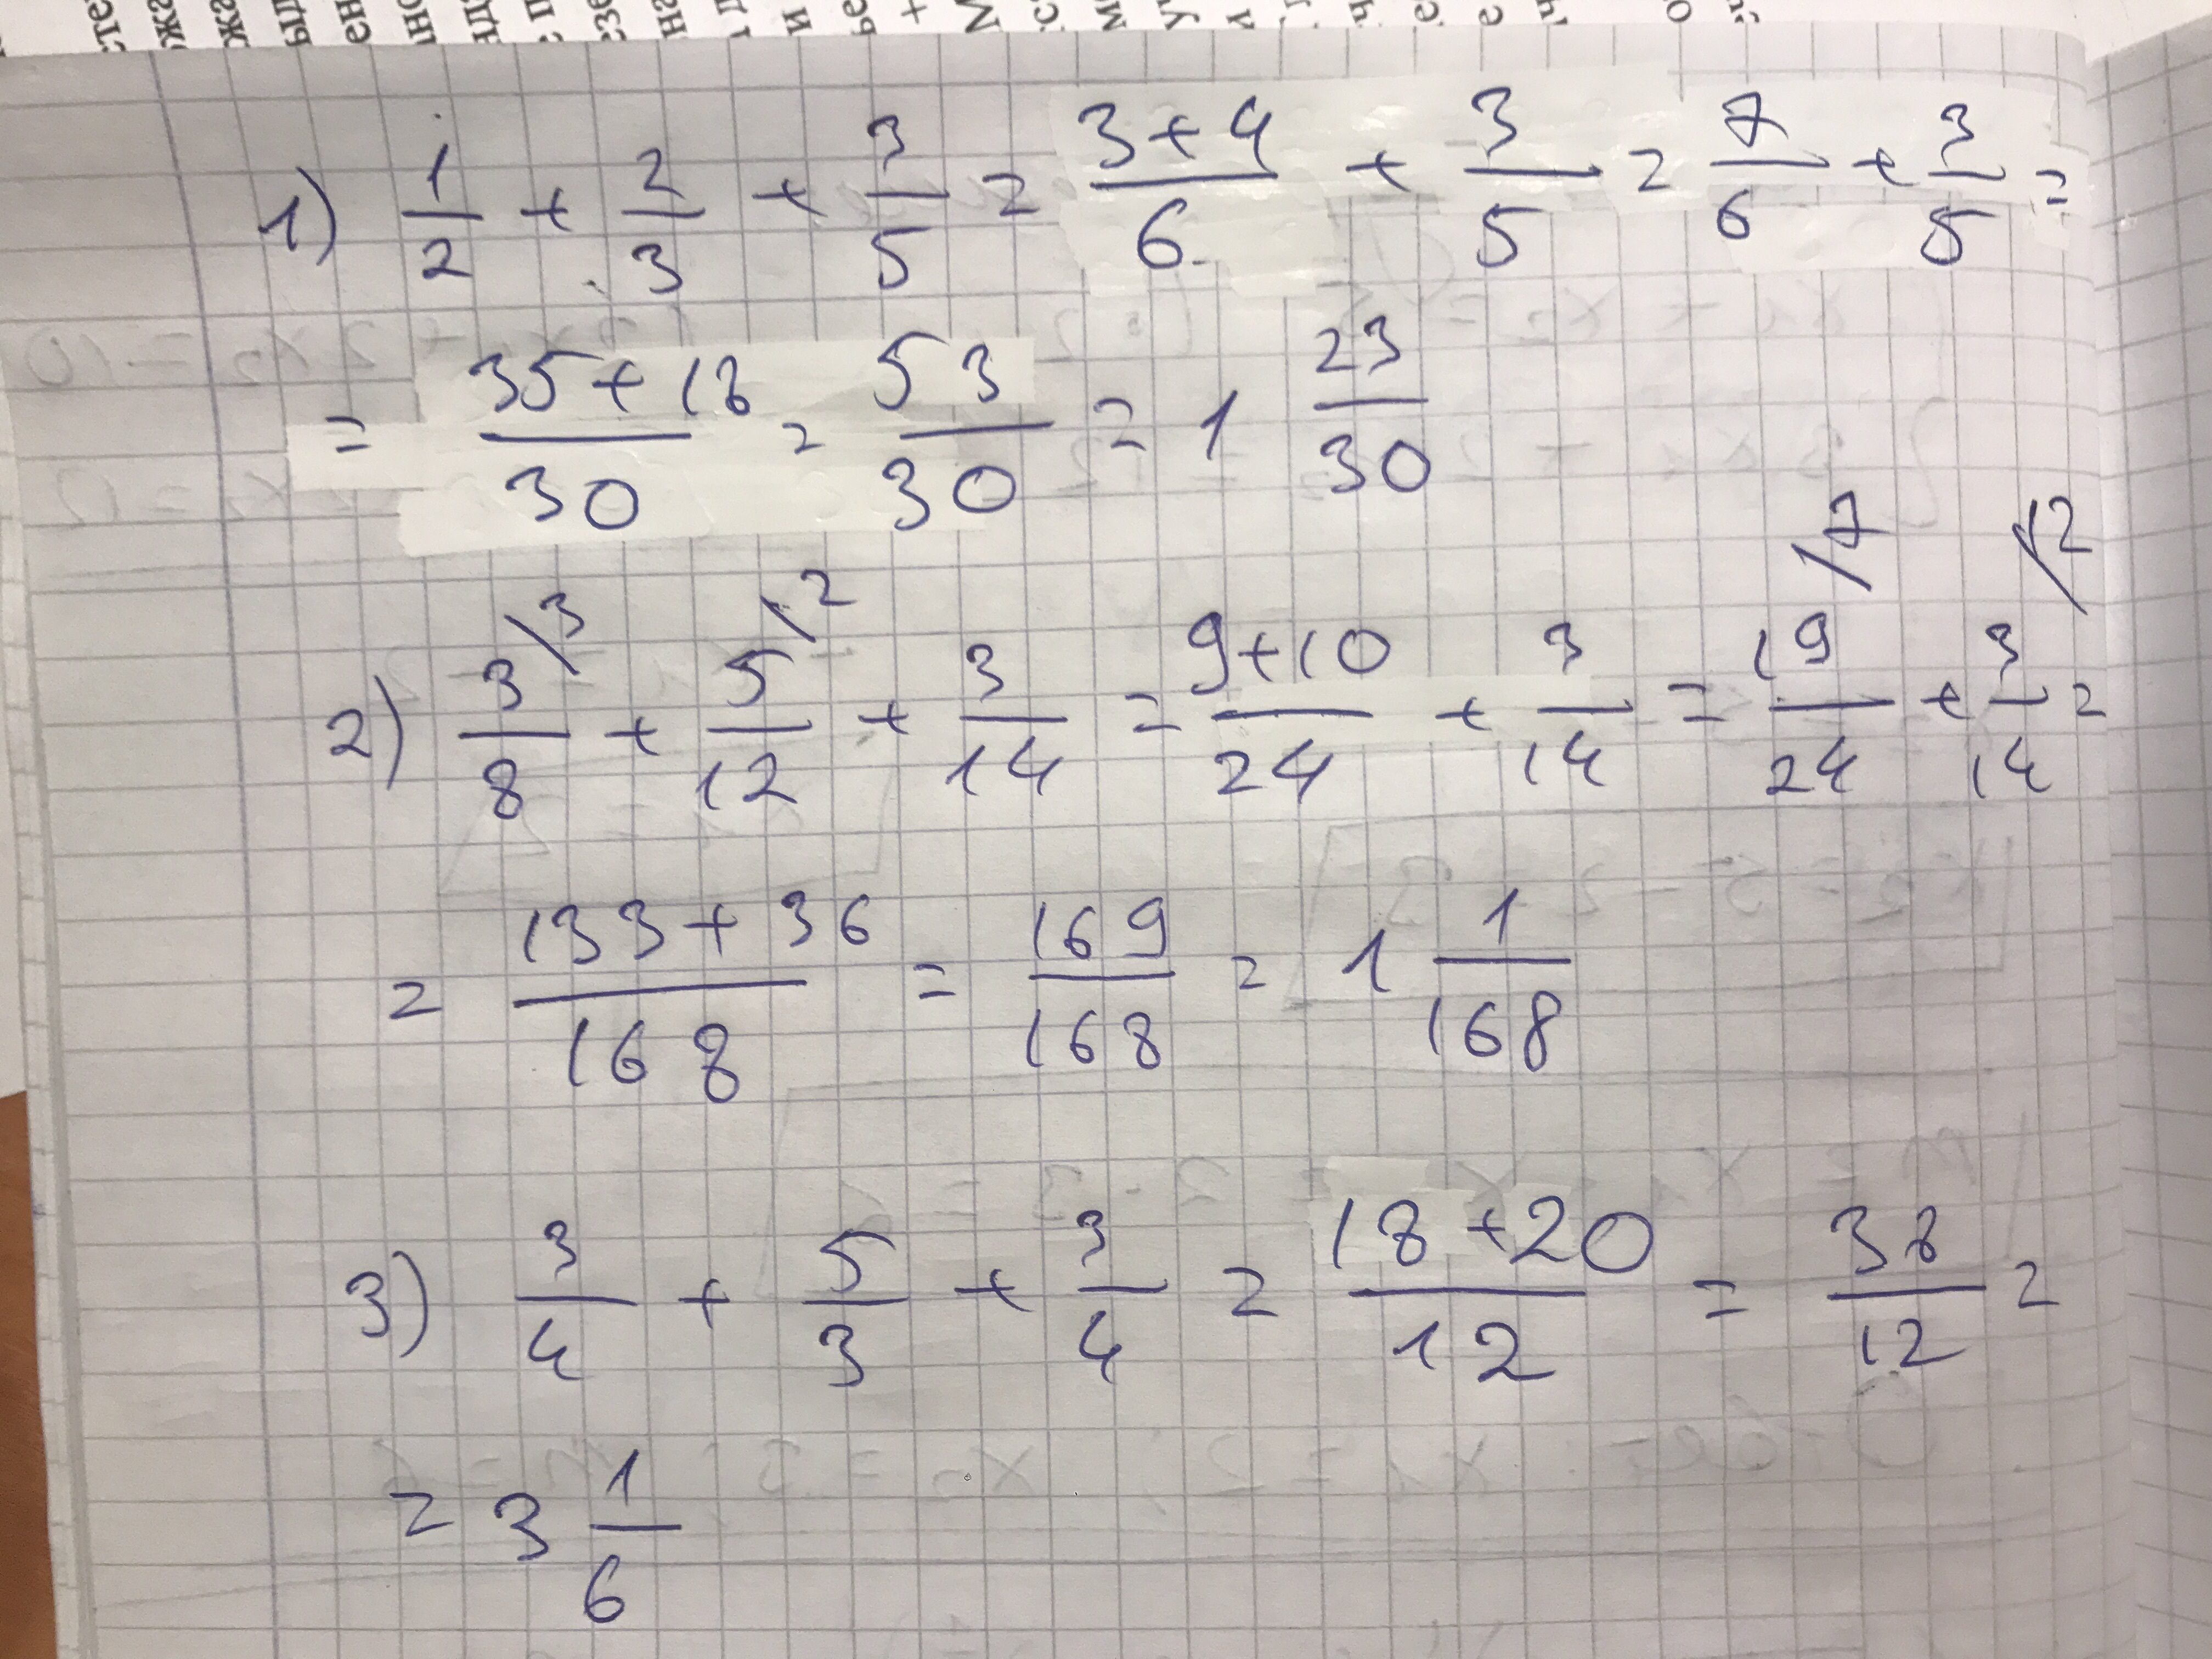 1) 1/2 + 2/3 + 3/5 = (3+4)/6 + 3/5 = 7/6 + 3/5 =
= (35+18)/30 = 53/30 = 1 23/30
2) 3/8 \3 + 5/12 \2 + 3/14 = (9+10)/24 + 3/14 = 19/24 \7 + 3/14 \12 =
= (133+36)/168 = 169/168 = 1 1/168
3) 3/4 + 5/3 + 3/4 = (18+20)/12 = 38/12 =
= 3 1/6